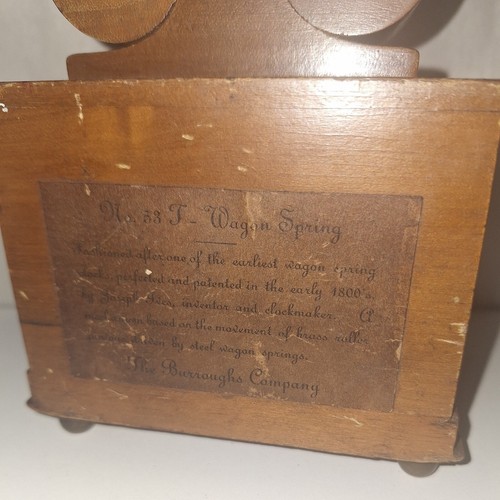 No. 53 T - Wagon Spring
Fashioned after one of the earliest wagon spring
clocks perfected and patented in the early 1800's,
by Joseph Ives, inventor and clockmaker. A
based on the movement of brass roller
driven by steel wagon springs.
The Burroughs Company